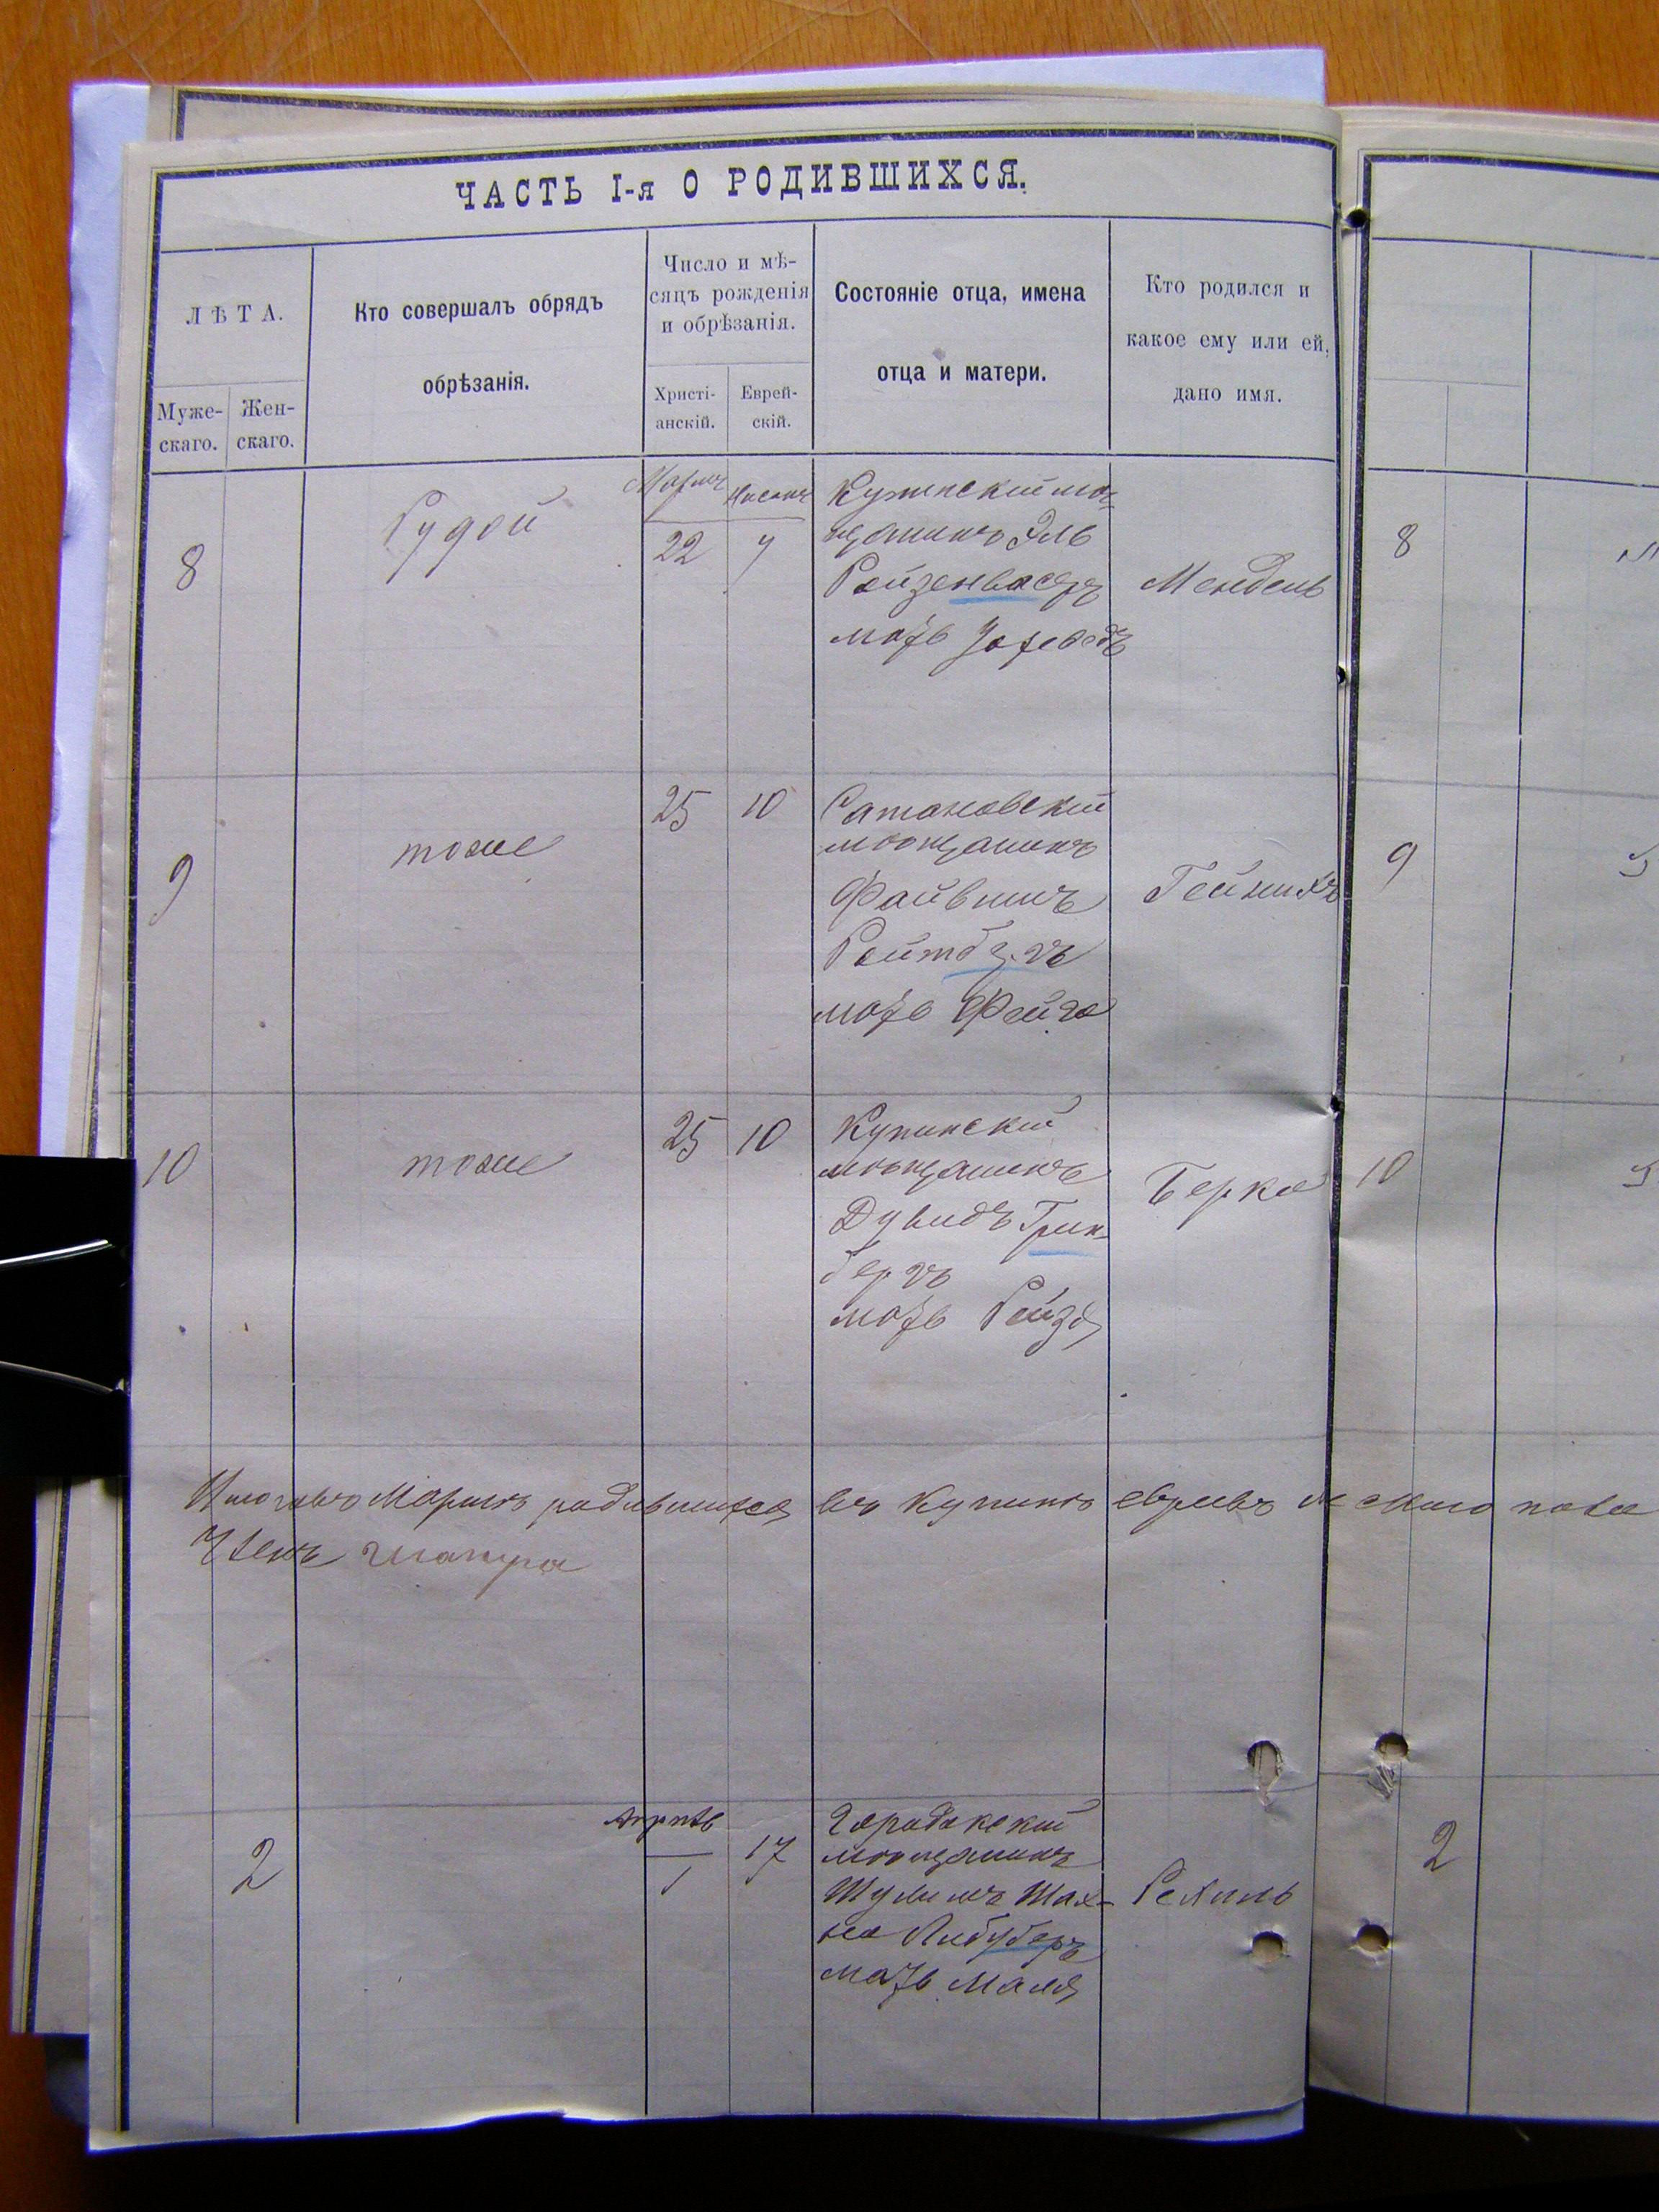 ЧАСТЬ I-я О РОДИВШИХСЯ.
ЛѢТА.
Муже-
скаго.
Жен-
скаго.
Кто совершалъ обрядъ
обрѣзанія.
Число и мѣ-
сяцъ рожденія
и обрѣзанія.
Христі-
анскій.
Еврей-
скій.
Состояніе отца, имена
отца и матери.
Кто родился и
какое ему или ей,
дано имя.
8
Рудой
Мартъ
22
7
Купинскій мѣ-
щанинъ Эль
Ройзенвасеръ
мать Іохеведъ
Мендель
8
9
тоже
25
10
Сатановскій
мѣщанинъ
Файвишъ
Ройтб
мать Фейга
Гейнихъ
9
10
тоже
25
10
Купинскій
мѣщанинъ
Дувидъ Грин-
бергъ
мать Рейзя
Берко
10
Мартѣ родившихся въ Купинѣ евреевъ
Членъ Шапира
2
Апрѣль
1
17
Городокскій
мѣщанинъ
Шулимъ Шах-
на
мать Маля
Рехиль
2